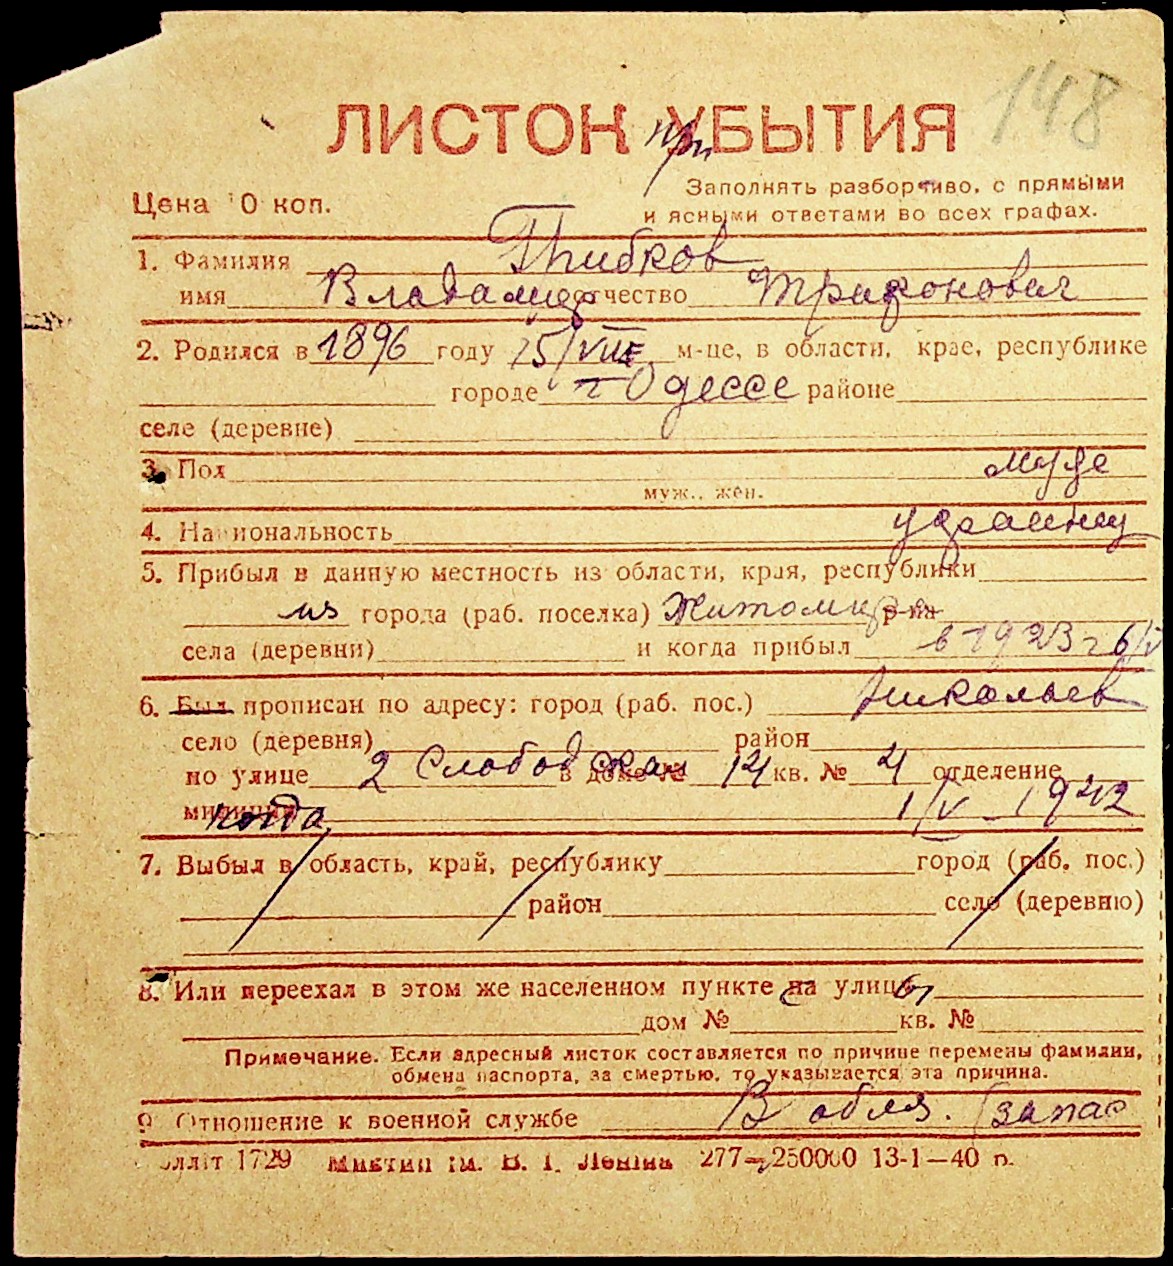 148
ЛИСТОК УБЫТИЯ
при
Цена 0 коп.
Заполнять разборчиво, с прямыми
и ясными ответами во всех графах.
1. Фамилия
имя Владамир отчество Трифонович
2. Родился в 1896 году 15/VIII м-це, в области, крае, республике
городе г Одессе районе
селе (деревне)
3. Пол муж
муж., жен.
4. Национальность
5. Прибыл в данную местность из области, края, республики
из города (раб. поселка) Житомир р-на
села (деревни) и когда прибыл в 1923 г 6/V
6. Был прописан по адресу: город (раб. пос.) Николаев
село (деревня) район
по улице 2 Слободская в доме № 14 кв. № 4 отделение
милиции когда 1/V 1942
7. Выбыл в область, край, республику город (раб. пос.)
район село (деревню)
8. Или переехал в этом же населенном пункте на улицу
дом № кв. №
Примечание. Если адресный листок составляется по причине перемены фамилии,
обмена паспорта, за смертью, то указывается эта причина.
9 Отношение к военной службе В обяз. (запас
1729 им. В. І. Леніна 277—250000 13-1—40 п.